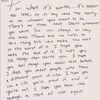 For what it's worth... it's never
too late, or in my case too early,
to be whoever you want to be.
There's no time limit. Start whenever
you want. You can change or stay
the same. There are no rules to
this thing. We can make the best
or the worst of it. I hope you
make the best of it. I hope you
see things that startle you. I hope
you feel things you've never felt before.
I hope you meet people who have
a different point of view. I hope you
live a life you're proud of, and
if you're not, I hope you have
the strength to start all over again.